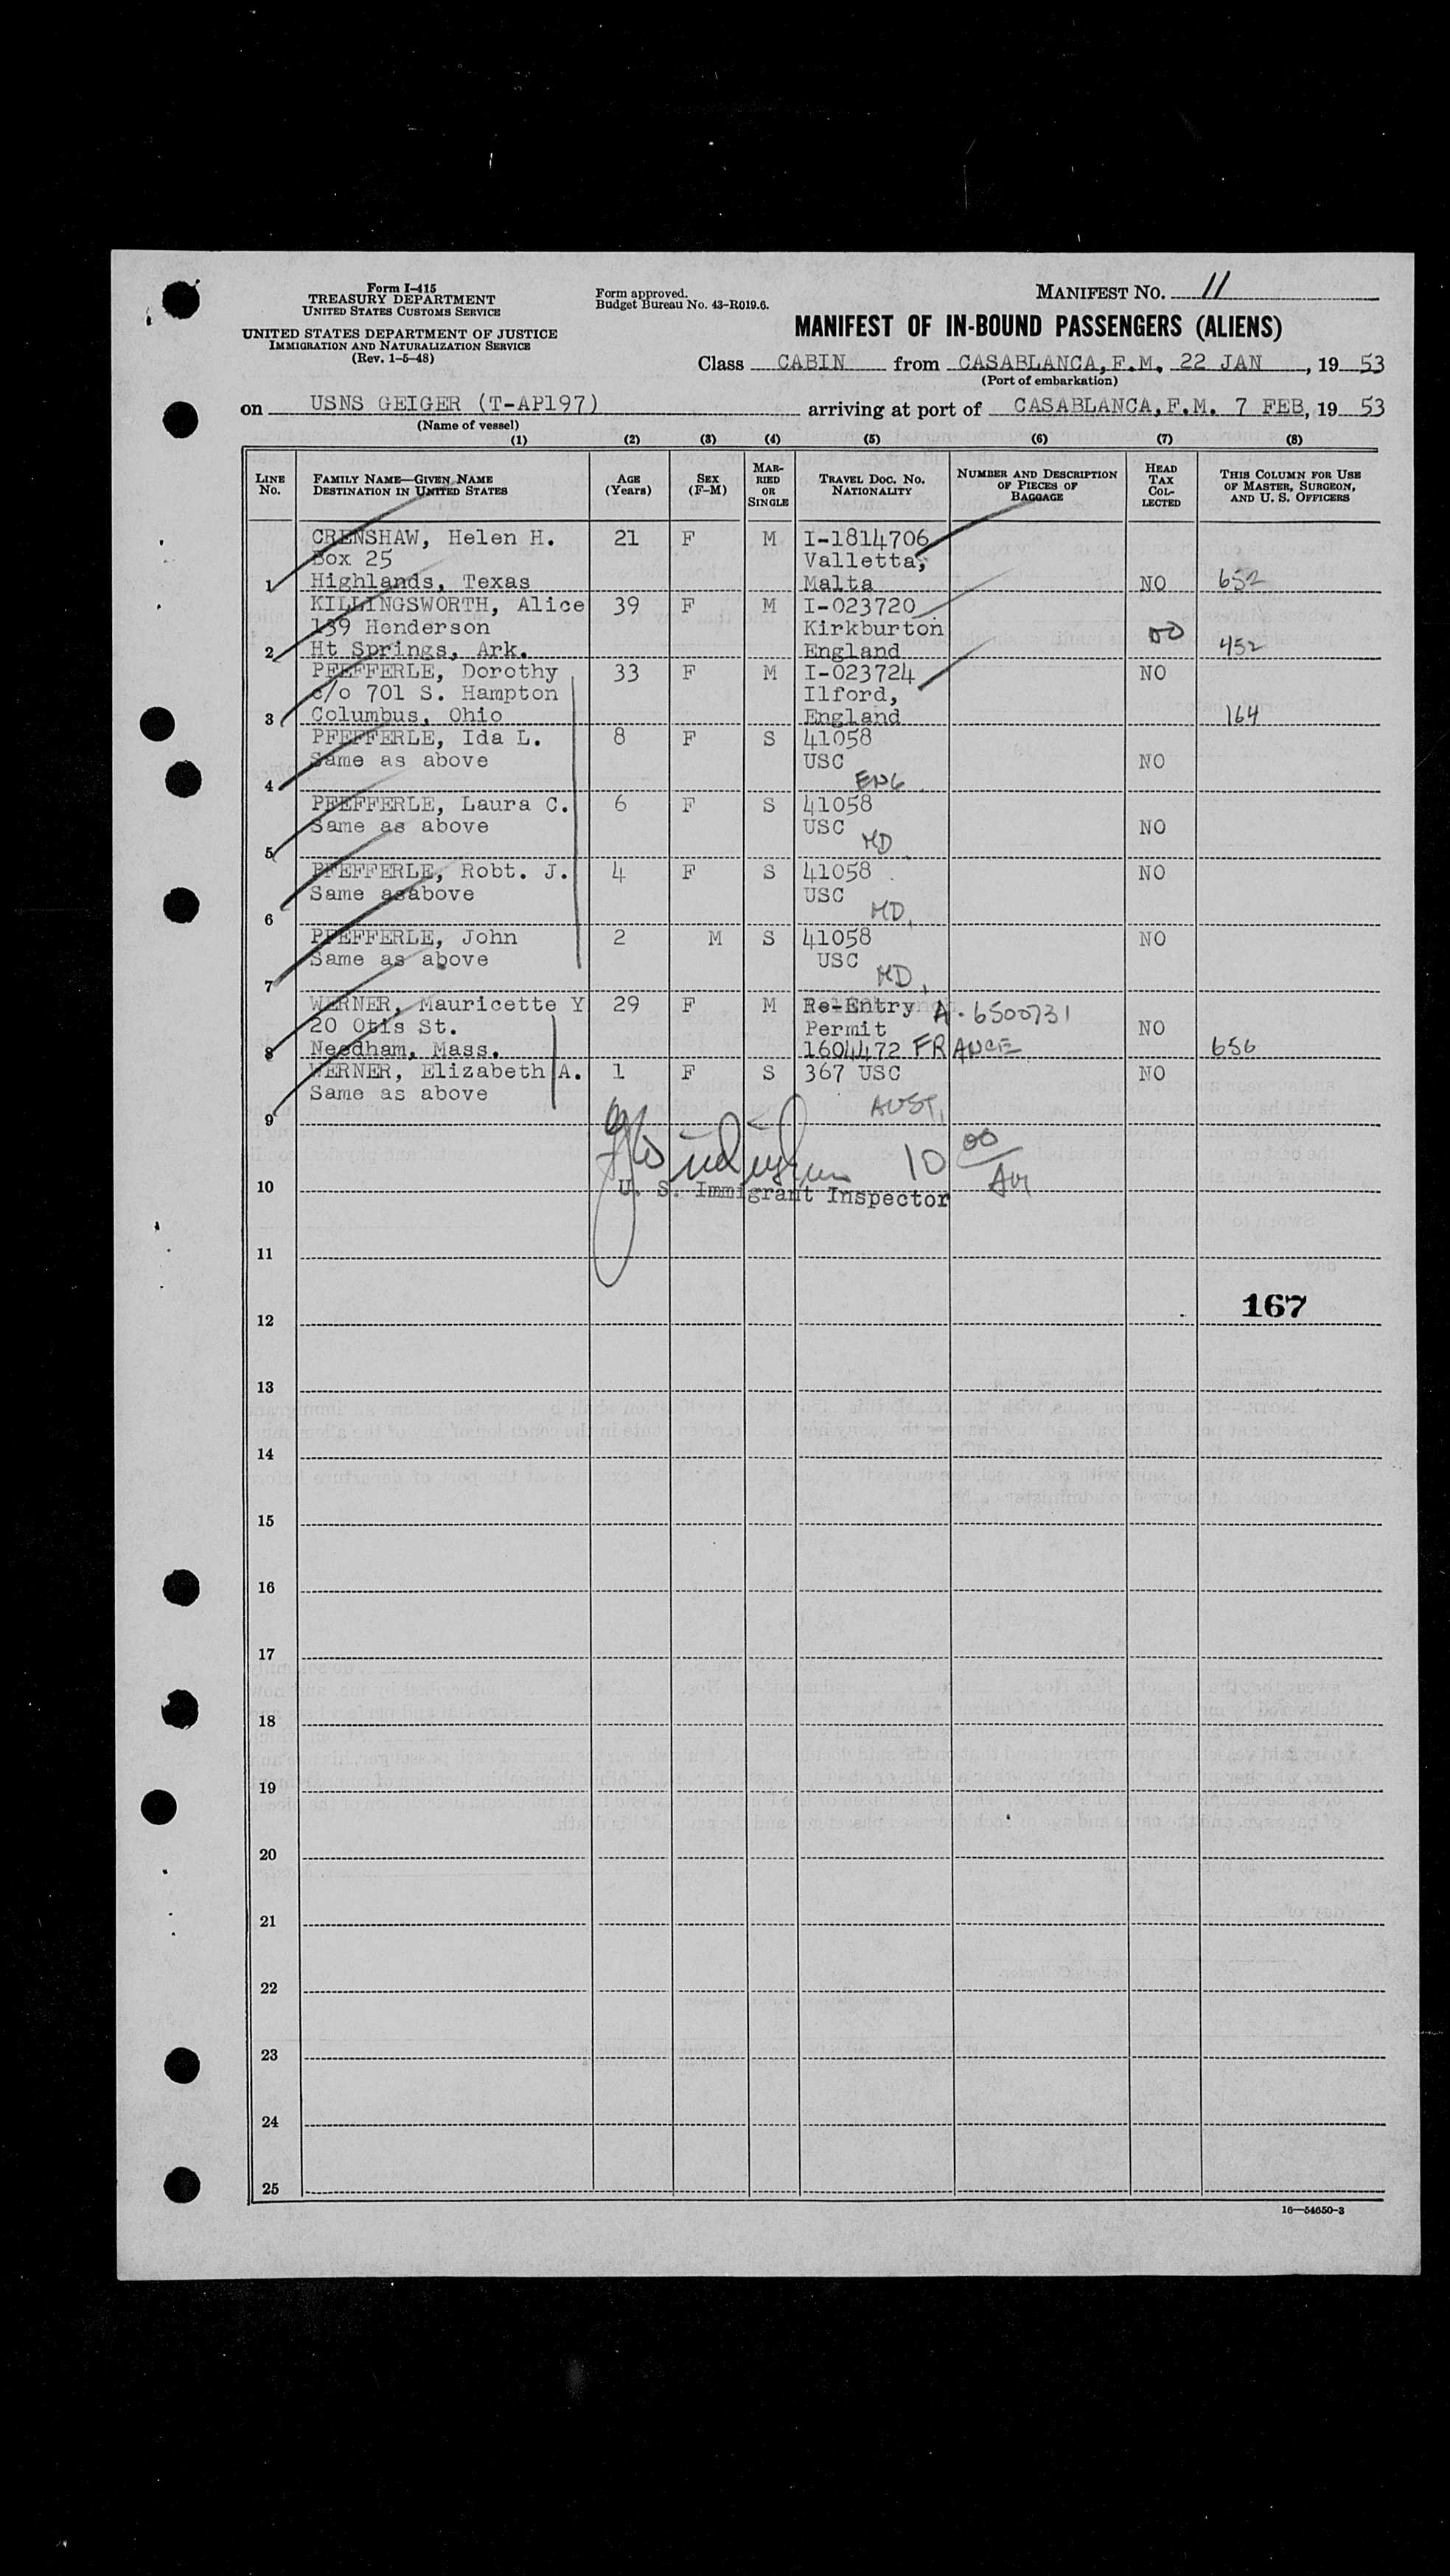 Form I-415
TREASURY DEPARTMENT
UNITED STATES CUSTOMS SERVICE
UNITED STATES DEPARTMENT OF JUSTICE
IMMIGRATION AND NATURALIZATION SERVICE
(Rev. 1-5-48)
Form approved.
Budget Bureau No. 43-R019.6.
MANIFEST NO. 11
MANIFEST OF IN-BOUND PASSENGERS (ALIENS)
Class CABIN from CASABLANCA, F.M. 22 JAN, 19 53
(Port of embarkation)
on USNS GEIGER (T-AP197) arriving at port of CASABLANCA, F.M. 7 FEB, 19 53
(Name of vessel)
(1) (2) (3) (4) (5) (6) (7) (8)
LINE No. FAMILY NAME—GIVEN NAME DESTINATION IN UNITED STATES AGE (Years) SEX (F-M) MARRIED OR SINGLE TRAVEL DOC. NO. NATIONALITY NUMBER AND DESCRIPTION OF PIECES OF BAGGAGE HEAD TAX COLLECTED THIS COLUMN FOR USE OF MASTER, SURGEON, AND U. S. OFFICERS
CRENSHAW, Helen H. 21 F M I-1814706
Box 25 Valletta,
1 Highlands, Texas Malta NO 652
KILLINGSWORTH, Alice 39 F M I-023720
139 Henderson Kirkburton
2 Ht Springs, Ark. England 452
PFEFFERLE, Dorothy 33 F M I-023724 NO
c/o 701 S. Hampton Ilford,
3 Columbus, Ohio England 164
PFEFFERLE, Ida L. 8 F S 41058
Same as above USC NO
4 ENG
PFEFFERLE, Laura C. 6 F S 41058
Same as above USC NO
5 MD
PFEFFERLE, Robt. J. 4 F S 41058 NO
Same asabove USC
6 MD,
PFEFFERLE, John 2 M S 41058 NO
Same as above USC
7 MD,
WERNER, Mauricette Y 29 F M Re-Entry A-6500731
20 Otis St. Permit NO
8 Needham, Mass. 1604472 FRANCE 656
WERNER, Elizabeth A. 1 F S 367 USC NO
Same as above
9 AUST,
10 00
10 U. S. Immigrant Inspector
11
12 167
13
14
15
16
17
18
19
20
21
22
23
24
25
16—54650-3